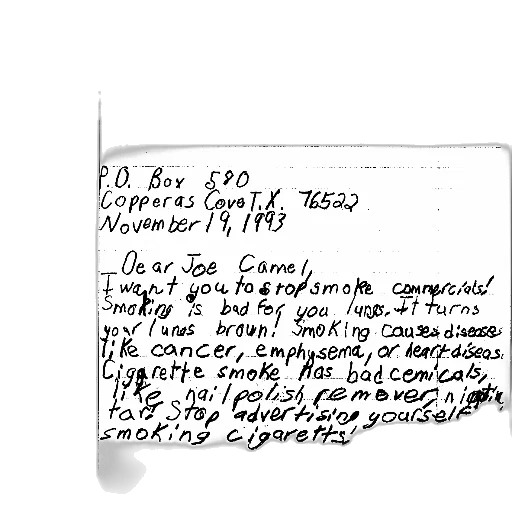 P.O. Box 580
Copperas Cove T.X. 76522
November 19, 1993
Dear Joe Camel,
I want you to stop smoke commercials!
Smoking is bad for you lungs. It turns
your lungs brown! Smoking causes diseases
like cancer, emphysema, or heart diseas.
Ciggarette smoke has bad cemicals,
like nailpolish remover,
tar! Stop advertising yourself
smoking cigaretts!